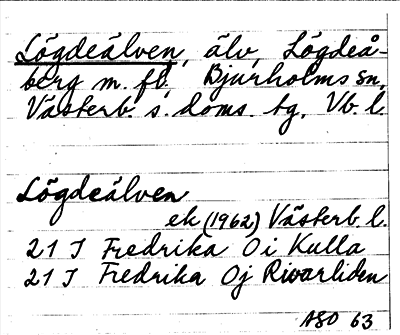 Lögdeälven, älv, Lögdeå-
berg m. fl., Bjurholms sn,
Västerb. s. doms. tg, Vb. l.
Lögdeälven
ek (1962) Västerb. l.
21 J Fredrika 0 i Kulla
21 J Fredrika 0j Rivarliden
ASO 63